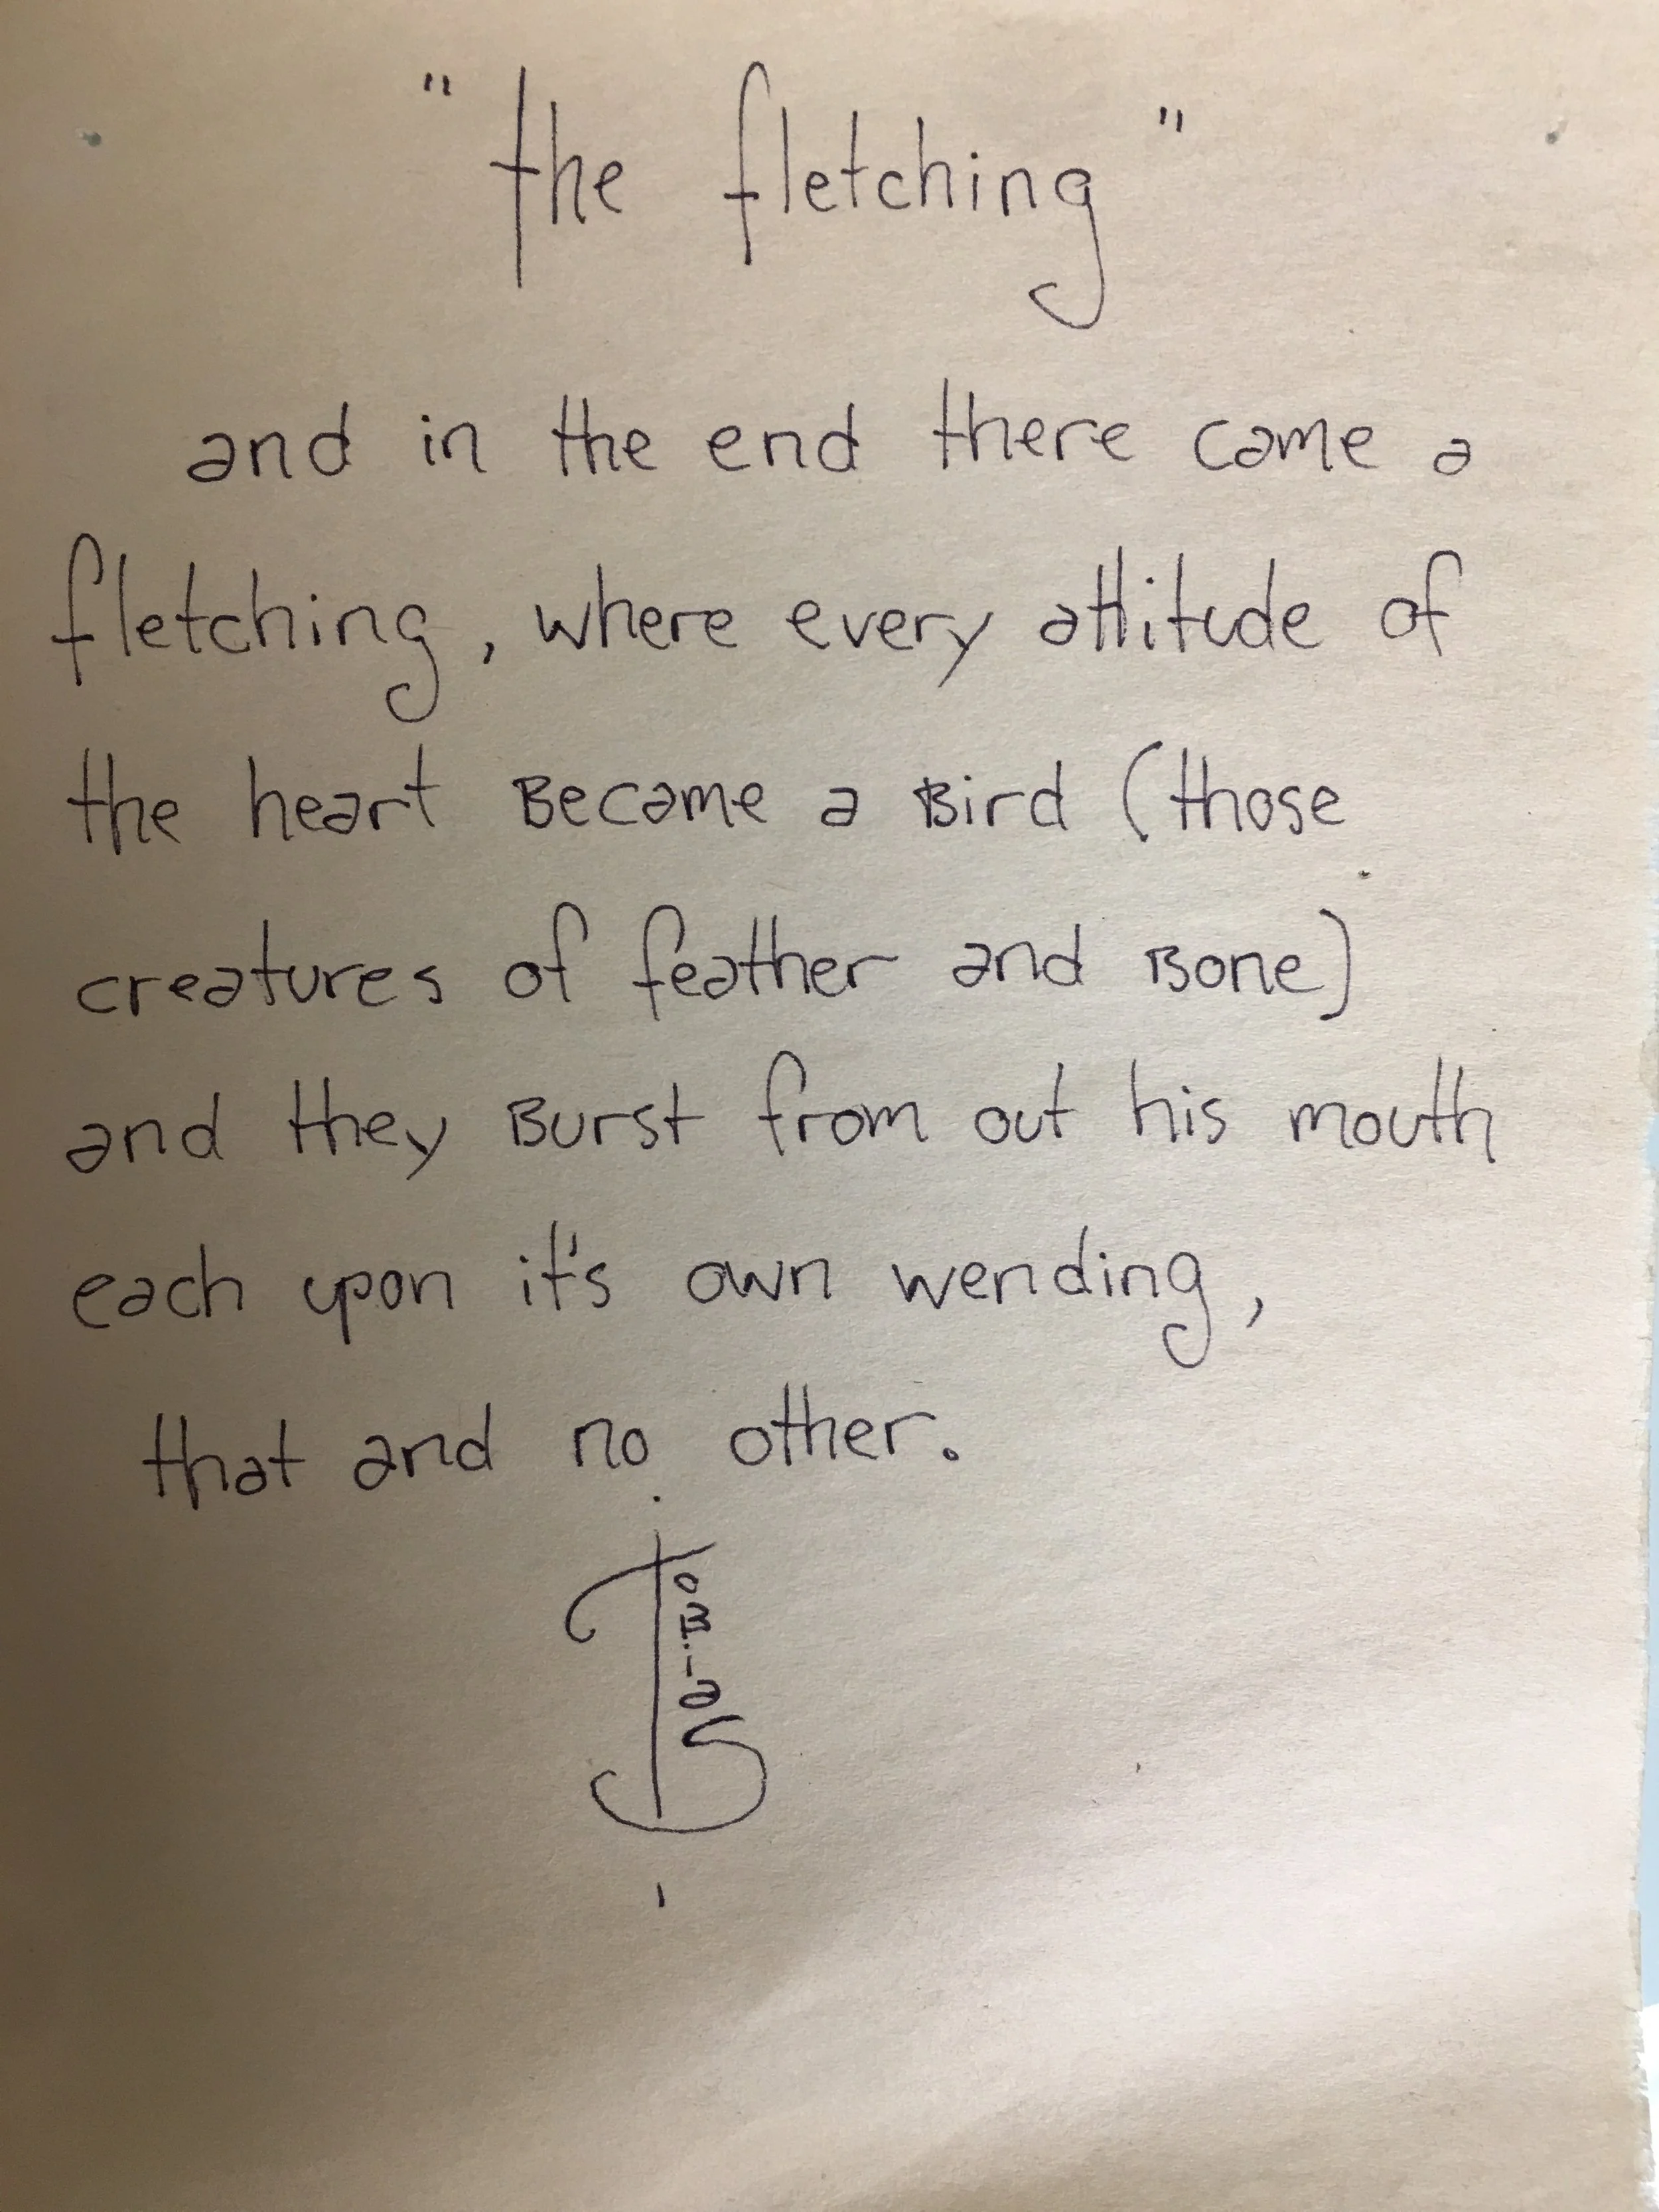 "the fletching"
and in the end there came a
fletching, where every attitude of
the heart Became a Bird (those
creatures of feather and Bone)
and they Burst from out his mouth
each upon it's own wending,
that and no other.